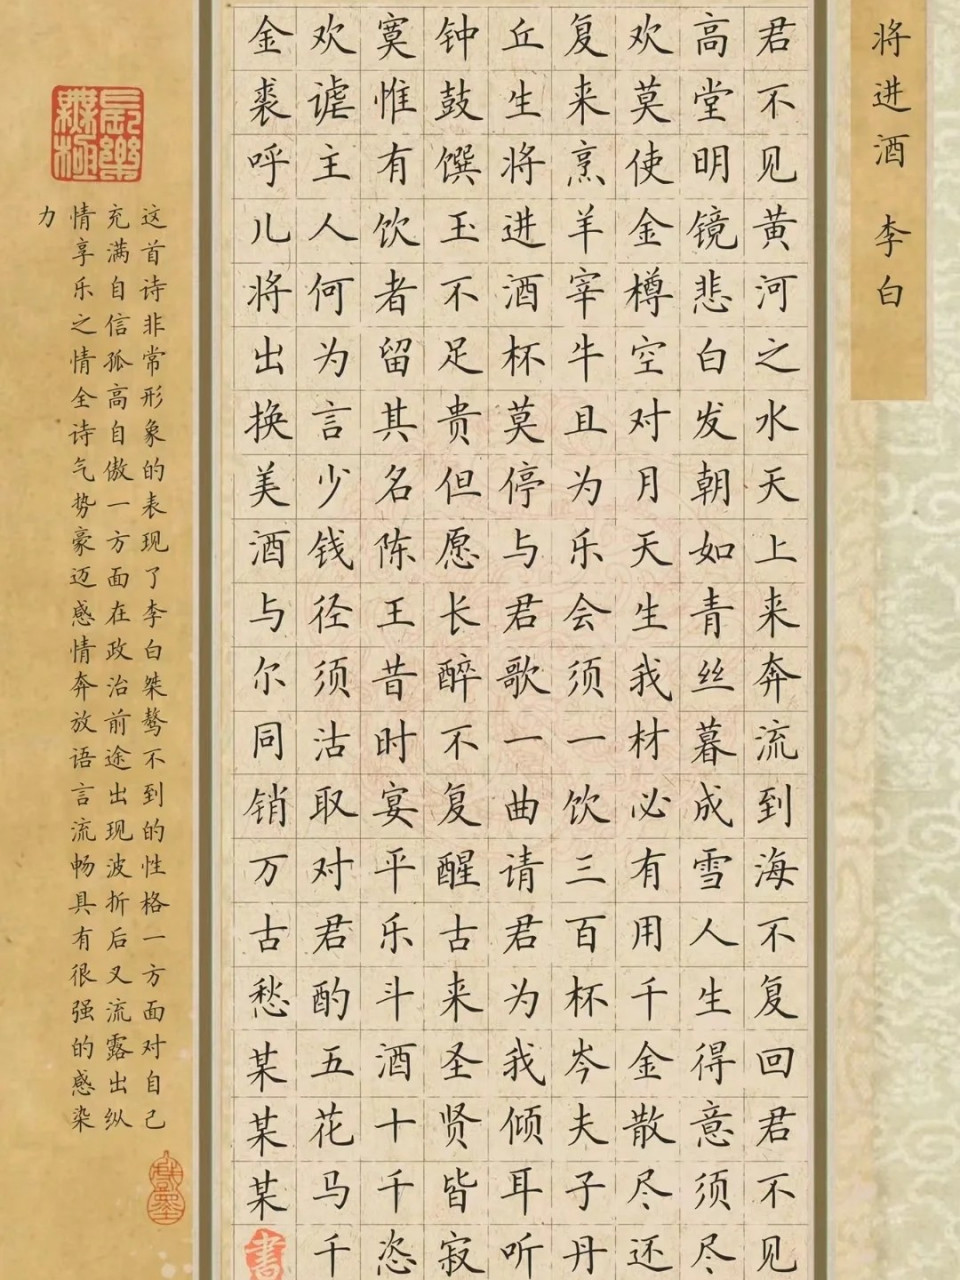 将进酒 李白
君不见黄河之水天上来奔流到海不复回君不见
高堂明镜悲白发朝如青丝暮成雪人生得意须尽
欢莫使金樽空对月天生我材必有用千金散尽还
复来烹羊宰牛且为乐会须一饮三百杯岑夫子丹
丘生将进酒杯莫停与君歌一曲请君为我倾耳听
钟鼓馔玉不足贵但愿长醉不复醒古来圣贤皆寂
寞惟有饮者留其名陈王昔时宴平乐斗酒十千恣
欢谑主人何为言少钱径须沽取对君酌五花马千
金裘呼儿将出换美酒与尔同销万古愁某某某書
長樂無極
这首诗非常形象的表现了李白桀骜不到的性格一方面对自己
充满自信孤高自傲一方面在政治前途出现波折后又流露出纵
情享乐之情全诗气势豪迈感情奔放语言流畅具有很强的感染
力